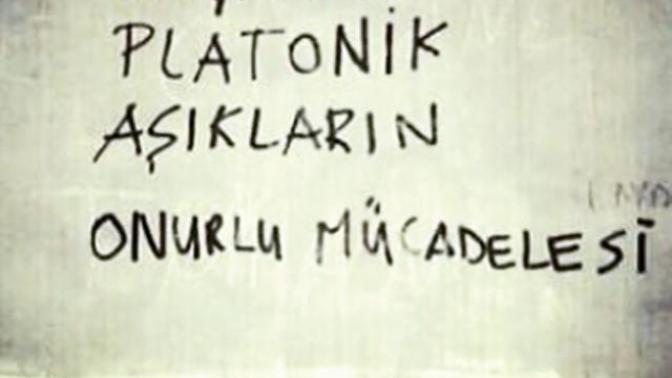 PLATONİK
AŞIKLARIN
ONURLU MÜCADELESİ